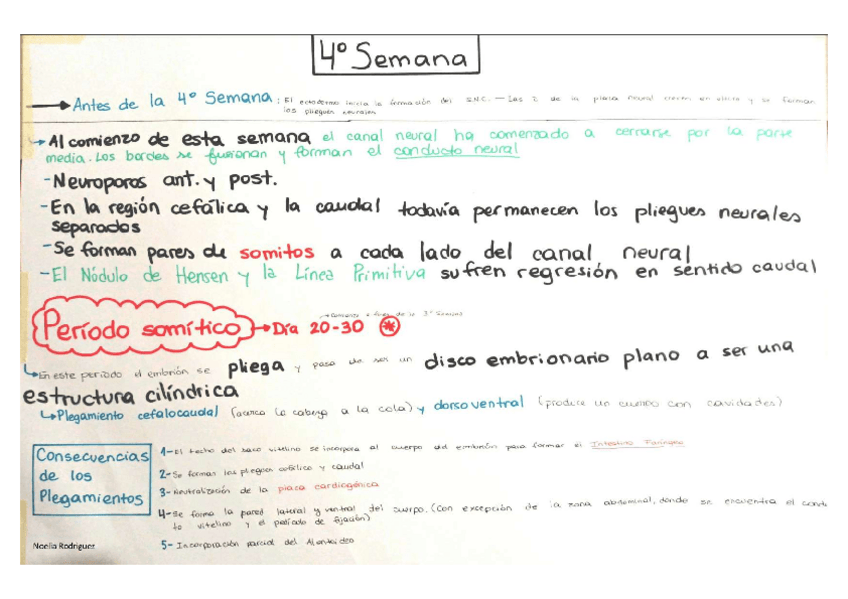 4º Semana
Antes de la 4º Semana: El ectodermo inicia la formación del S.N.C. — Los 2 de la placa neural crecen en altura y se forman
los pliegues neurales
Al comienzo de esta semana el canal neural ha comenzado a cerrarse por la parte
media. Los bordes se fusionan y forman el conducto neural
- Neuroporos ant. y post.
- En la región cefálica y la caudal todavía permanecen los pliegues neurales
separados
- Se forman pares de somitos a cada lado del canal neural
- El Nódulo de Hensen y la Línea Primitiva sufren regresión en sentido caudal
Comienza a fines de la 3º Semana
Período somítico → Día 20-30 *
En este período el embrión se pliega y pasa de ser un disco embrionario plano a ser una
estructura cilíndrica
Plegamiento cefalocaudal (acerca la cabeza a la cola) y dorsoventral (produce un cuerpo con cavidades)
Consecuencias
de los
Plegamientos
1- El techo del saco vitelino se incorpora al cuerpo del embrión para formar el Intestino Faríngeo
2- Se forman los pliegues cefálico y caudal
3- Neutralización de la placa cardiogénica
4- Se forma la pared lateral y ventral del cuerpo. (Con excepción de la zona abdominal, donde se encuentra el condu
to vitelino y el pedículo de fijación)
5- Incorporación parcial del Alantoides
Noelia Rodriguez